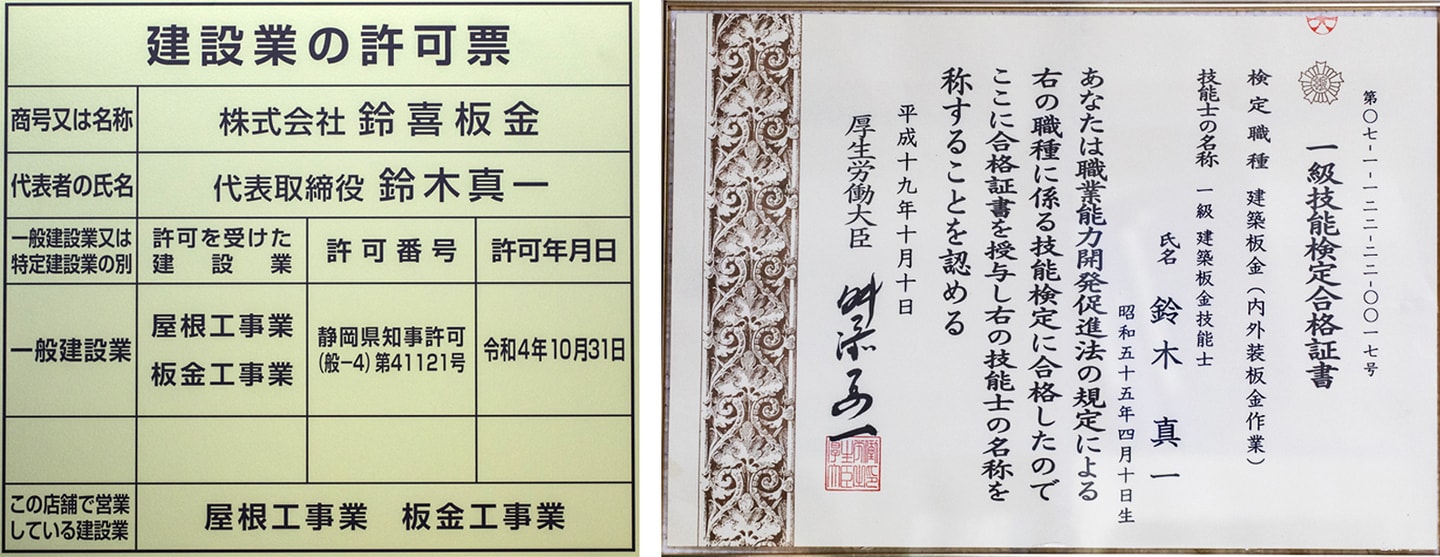 建設業の許可票
商号又は名称
株式会社 鈴喜板金
代表者の氏名
代表取締役 鈴木真一
一般建設業又は
特定建設業の別
許可を受けた
建設業
許可番号
許可年月日
一般建設業
屋根工事業
板金工事業
静岡県知事許可
(般−4)第41121号
令和4年10月31日
この店舗で営業
している建設業
屋根工事業 板金工事業
第〇七-一-一二二-二二-〇〇一七号
一級技能検定合格証書
検定職種 建築板金(内外装板金作業)
技能士の名称 一級 建築板金技能士
氏名 鈴木真一
昭和五十五年四月十日生
あなたは職業能力開発促進法の規定による
右の職種に係る技能検定に合格したので
ここに合格証書を授与し右の技能士の名称を
称することを認める
平成十九年十月十日
厚生労働大臣